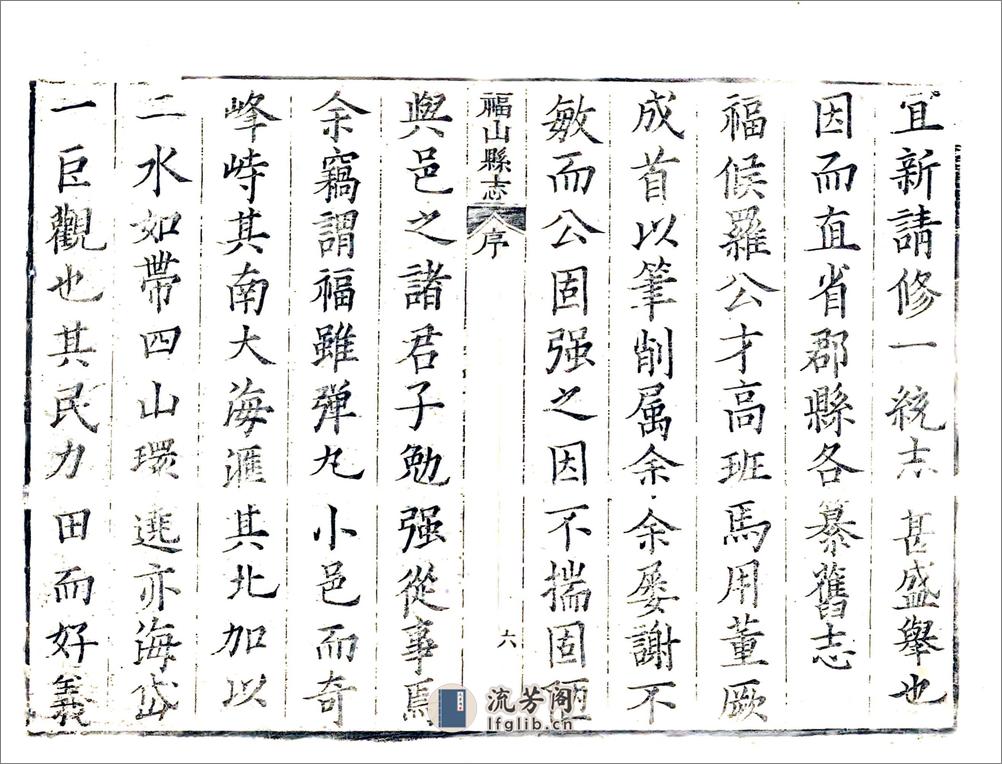 宜新請修一統志甚盛舉也
因而直省郡縣各纂舊志
福候羅公才高班馬用董厥
成首以筆削属余余屡謝不
敏而公固强之因不揣固陋
福山縣志 序 六
與邑之諸君子勉强從事焉
余竊謂福雖弹丸小邑而奇
峰峙其南大海滙其北加以
二水如帶四山環遶亦海岱
一巨觀也其民力田而好義
流芳阁
lfglib.cn